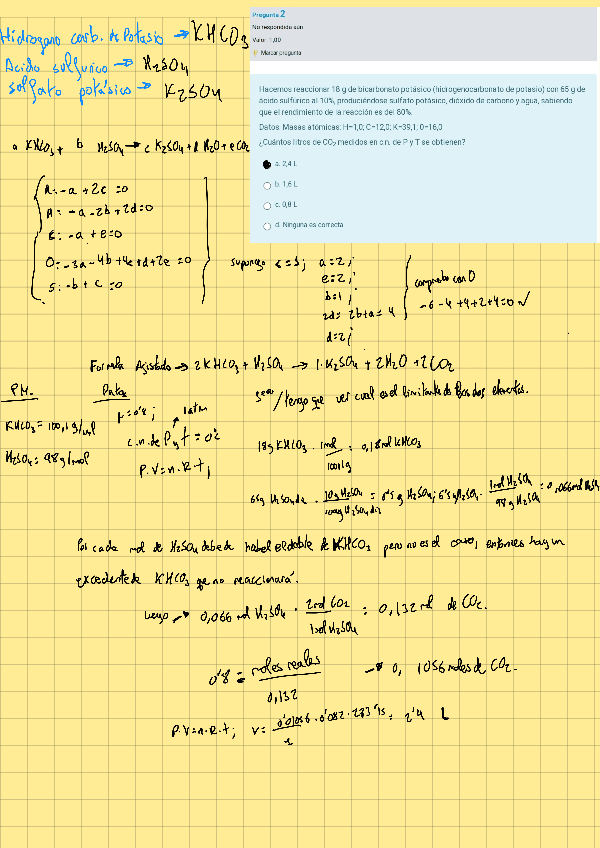 Hidrogeno carb. de Potasio → KHCO3
Acido sulfurico → H2SO4
solfato potásico → K2SO4
Pregunta 2
No respondida aún
Valor: 1,00
Marcar pregunta
Hacemos reaccionar 18 g de bicarbonato potásico (hidrogenocarbonato de potasio) con 65 g de
ácido sulfúrico al 10%, produciéndose sulfato potásico, dióxido de carbono y agua, sabiendo
que el rendimiento de la reacción es del 80%.
Datos: Masas atómicas: H=1,0; C=12,0; K=39,1; O=16,0
¿Cuántos litros de CO2 medidos en c.n. de P y T se obtienen?
a. 2,4 L
b. 1,6 L
c. 0,8 L
d. Ninguna es correcta
a KHCO3 + b H2SO4 → c K2SO4 + d H2O + e CO2
: -a + 2c = 0
: -a - 2b + 2d = 0
: -a + e = 0
O: -3a - 4b + 4c + d + 2e = 0
S: -b + c = 0
supongo c = 1; a = 2;
e = 2;
b = 1;
2d = 2b + a = 4
d = 2;
compruebo con O
-6 - 4 + 4 + 2 + 4 = 0 ✓
Formula Ajustado → 2 KHCO3 + H2SO4 → 1·K2SO4 + 2H2O + 2CO2
PM.
KHCO3 = 100,1 g/mol
H2SO4 = 98 g/mol
Datos
= 0'8; 1atm
c.n. de P y t = 0º
P.V = n.R.t;
/ tengo que ver cual es el limitante de los dos elementos.
18g KHCO3 · 1mol / 100,1g = 0,18 mol KHCO3
65g H2SO4 dis · 10g H2SO4 / 100g H2SO4 dis = 6'5 g H2SO4; 6'5 g H2SO4 · 1mol H2SO4 / 98 g H2SO4 = 0,066 mol H2SO4
Por cada mol de H2SO4 debe de haber el doble de KHCO3 pero no es el caso, entonces hay un
excedente de KHCO3 que no reaccionará.
luego → 0,066 mol H2SO4 · 2mol CO2 / 1mol H2SO4 = 0,132 mol de CO2.
0'8 = moles reales / 0,132 → 0,1056 moles de CO2.
P.V = n.R.t; V = 0'01056 · 0'082 · 273'15 / 1 = 2'4 L